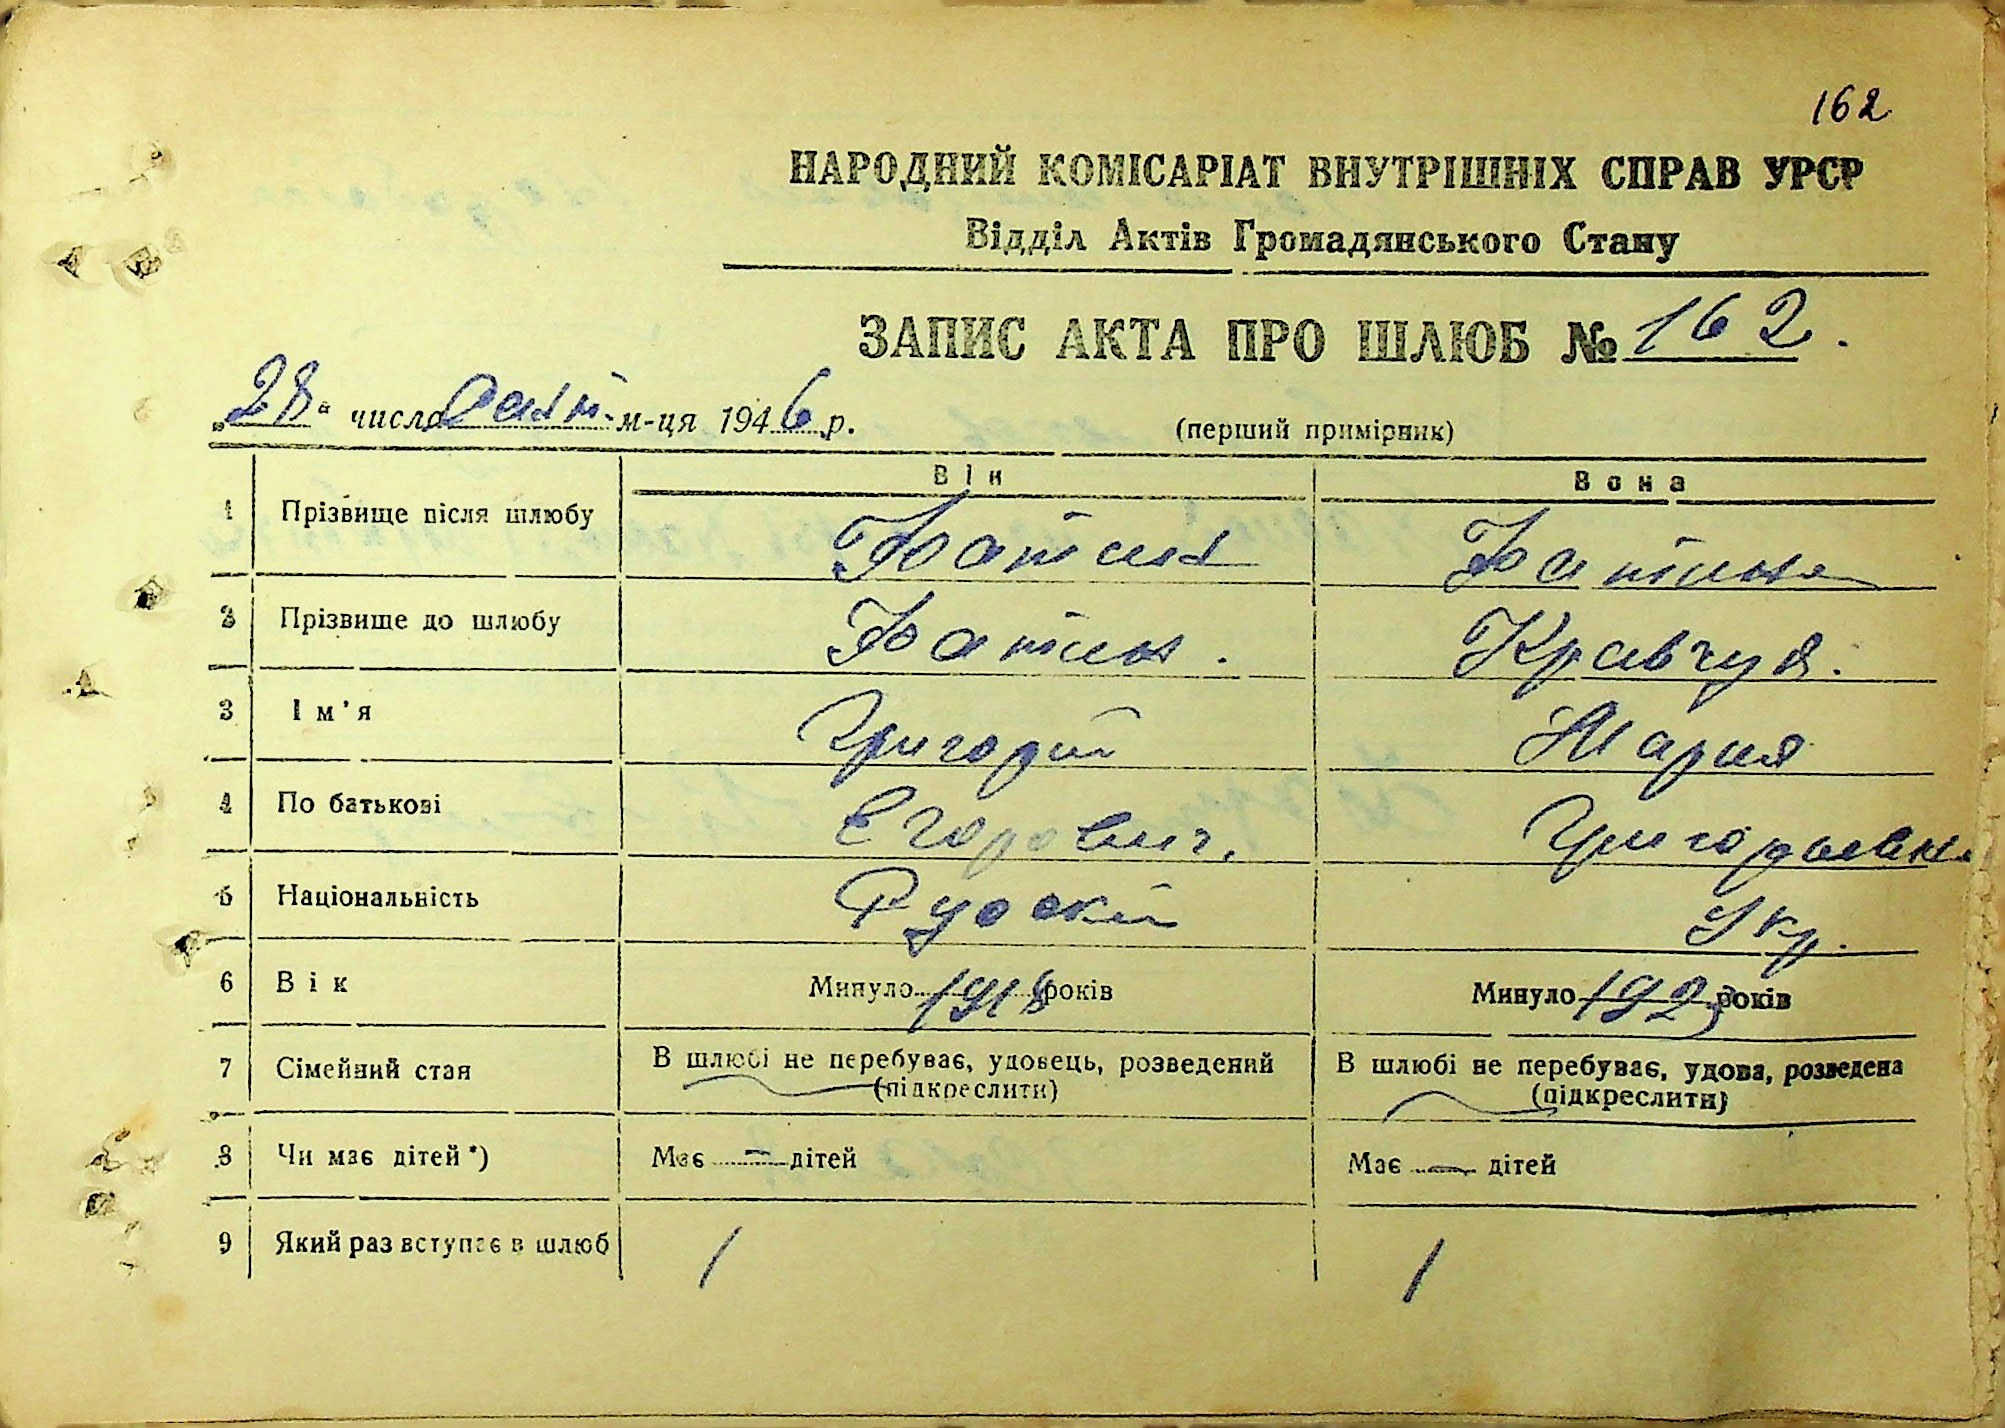 162
НАРОДНИЙ КОМІСАРІАТ ВНУТРІШНІХ СПРАВ УРСР
Відділ Актів Громадянського Стану
ЗАПИС АКТА ПРО ШЛЮБ № 162.
„28" число м-ця 1946 р. (перший примірник)
Він Вона
1 Прізвище після шлюбу Батин Батина
2 Прізвище до шлюбу Батин. Кравчук.
3 Ім'я Григорий Мария
4 По батькові Егорович. Григорьевн.
5 Національність Русский Укр.
6 Вік Минуло 1918 років Минуло 1923 років
7 Сімейний стан В шлюбі не перебуває, удовець, розведений (підкреслити) В шлюбі не перебуває, удова, розведена (підкреслити)
8 Чи має дітей*) Має — дітей Має — дітей
9 Який раз вступає в шлюб 1 1